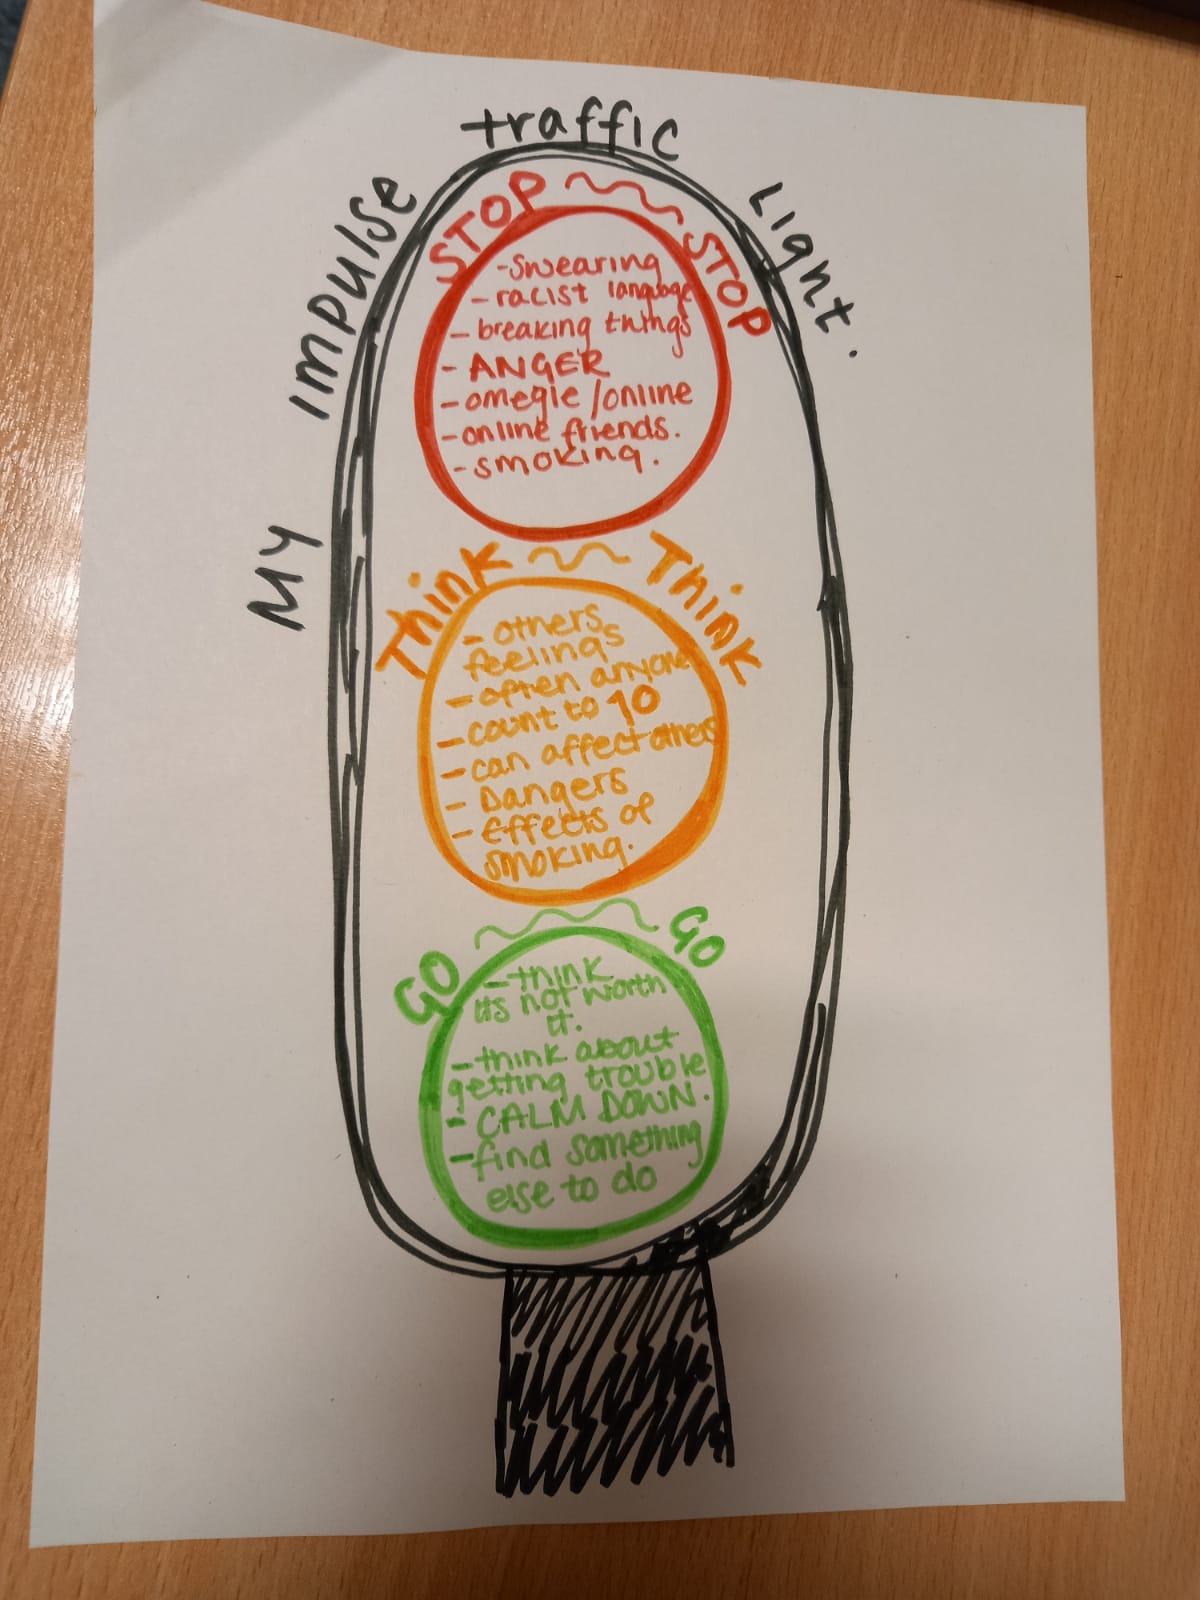 MY IMPULSE traffic Light.
STOP STOP
- Swearing
- racist language
- breaking things
- ANGER
- omegle/online
- online friends.
- smoking.
Think Think
- others
feelings
- often anyone
- count to 10
- can affect others
- Dangers
- Effects of
smoking.
GO GO
- think
its not worth
it.
- think about
getting trouble
- CALM DOWN.
- find something
else to do